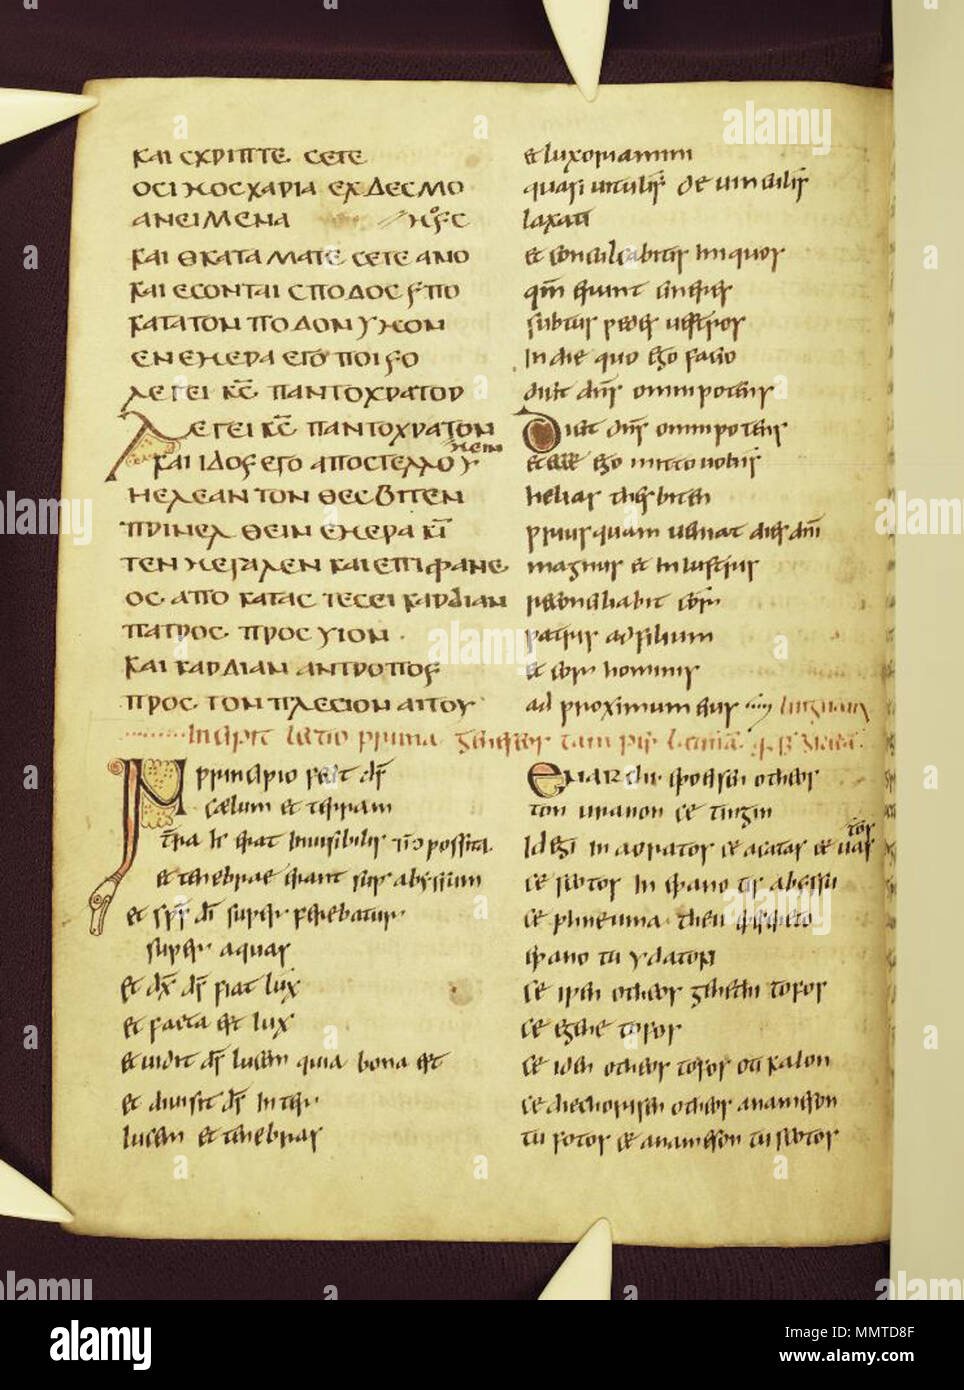 ΚΑΙ СΧΡΙΠΤΕ. СΕΤΕ
ΟСΙ ΜΟСΧΑΡΙΑ ΕΧ ΔΕСΜΟ
ΑΝΕΙΜΕΝΑ
ΚΑΙ ΘΚΑΤΑΜΑΤΕ СΕΤΕ ΑΝΟ
ΚΑΙ ΕСΟΝΤΑΙ СΠΟΔΟС
ΚΑΤΑ ΤΟΝ ΠΟΔΟΝ ΥΜΟΝ
ΕΝ ΕΜΕΡΑ ΕΓΟ
ΛΕΓΕΙ ΚС ΠΑΝΤΟΧΡΑΤΟΡ
ΛΕΓΕΙ ΚС ΠΑΝΤΟΧΡΑΤΟΝ
ΚΑΙ ΙΔΟΥ ΕΓΟ ΑΠΟСΤΕΛΛΟ ΥΜΕΙΝ
ΗΕΛΕΑΝ ΤΟΝ ΘΕСΒΙΤΕΝ
ΠΡΙΝ ΕΛΘΕΙΝ ΕΜΕΡΑ ΚΥ
ΤΕΝ ΜΕΓΑΛΕΝ ΚΑΙ ΕΠΙΦΑΝΕ
ΟС ΑΠΟ ΚΑΤΑС ΤΕСΕΙ ΚΑΡΔΙΑΝ
ΠΑΤΡΟС ΠΡΟС ΥΙΟΝ .
ΚΑΙ ΚΑΡΔΙΑΝ ΑΝΤΡΟΠΟΥ
ΠΡΟС ΤΟΝ ΠΛΕСΙΟΝ ΑΙΤΟΥ
et luxoriamini
quasi uituli de uinculis
laxati
et conculcabitis iniquos
qm erunt cineres
subtus pedes uestros
In die quo ego facio
dicit dns omnipotens
Dicit dns omnipotens
et ego mitto uobis
helias thesbiten
priusquam ueniat dies dni
magnus et inlustris
reconciliabit cor
patris ad filium
et cor hominis
ad proximum eius
Incipit lectio prima
In principio fecit ds
caelum et terram
terra erat inuisibilis possita
et tenebrae erant sup abyssum
et sps di super ferebatur
super aquas
et dx ds fiat lux
et facta est lux
et uidit ds lucem quia bona est
et diuisit ds inter
lucem et tenebras
En archi epoesen otheos
ton uranon ce tin gin
I de gi in aoratos ce acatas ce uastos
ce scotos in epano tis abessu
ce pneuma theu epefeto
epano tu ydaton
ce ipen otheos genethi tofos
ce egene tofos
ce iden otheos tofos oti kalon
ce diechorisen otheos anameson
tu fotos ce anameson tu scotos
alamy
alamy
Image ID: MMTD8F
www.alamy.com